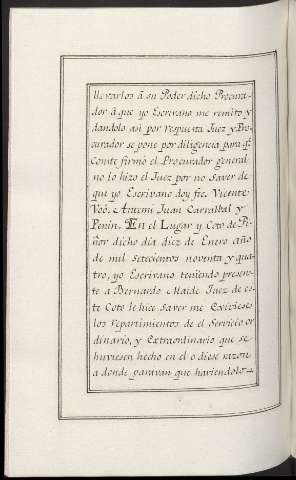 llevarlos â su Poder dicho Procura-
dor â que yo Escrivano me remito y
dandolo asi por respuesta Juez y Pro-
curador se pone por diligencia para qe.
Conste firmó el Procurador general
no lo hizo el Juez por no saver de
que yo Escrivano doy fee. Vicente
Voó. Antemi Juan Carraltal y
Penin. En el Lugar y Coto de Pi-
ñor dicho dia diez de Enero año
de mil Setecientos noventa y qua-
tro, yo Escrivano teniendo presen-
te a Bernardo Maide Juez de es-
te Coto le hice Saver me Exiviese
los repartimientos de el Servicio or
dinario, y Extraordinario que se
huviesen hecho en el o diese razon
a donde paravan que haviendolo